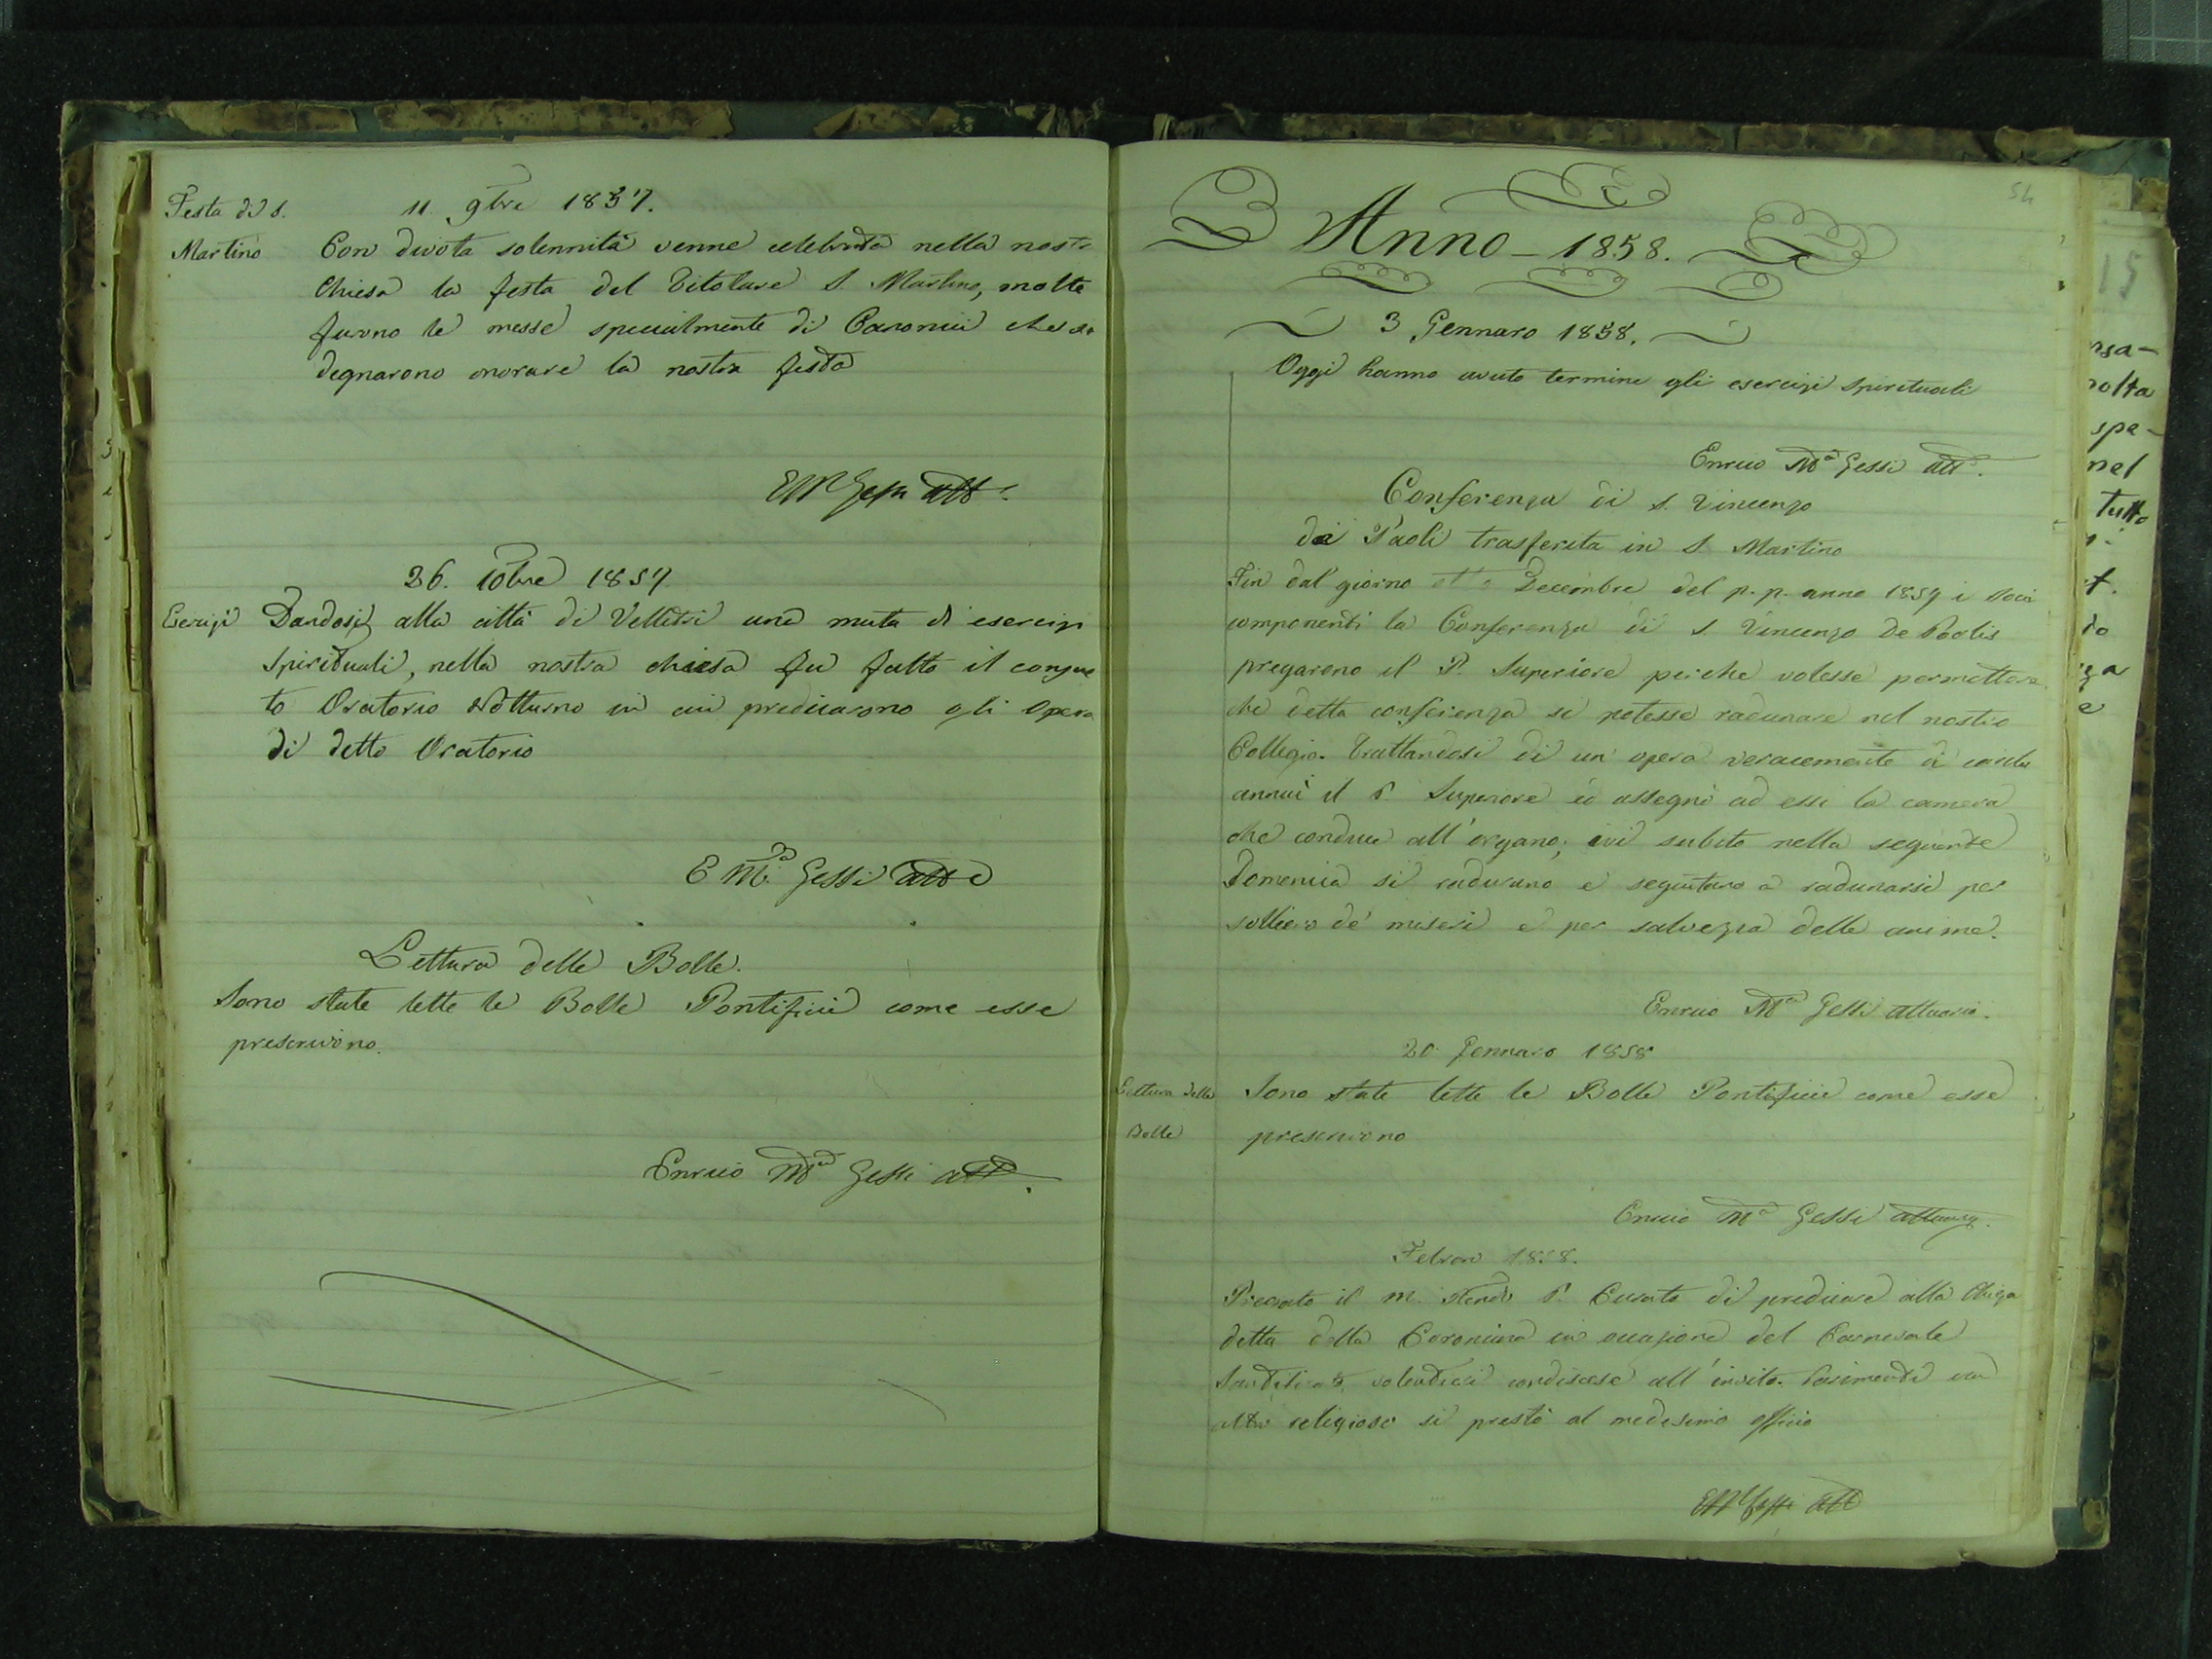 Festa di S.
Martino
11. 9bre 1857.
Con divota solennità venne celebrata nella nostr
Chiesa la festa del Titolare S. Martino, molte
furono le messe specialmente di Canonici che si
degnarono onorare la nostra festa
E M Gessi att.
26. 10bre 1857
Esercizi
Dandosi alla città di Velletri una muta di esercizi
Spirituali, nella nostra chiesa fu fatto il consue
to Oratorio Notturno in cui predicarono gli Opera
di detto Oratorio
E Ma. Gessi att
Lettura delle Bolle.
Sono state lette le Bolle Pontificie come esse
prescrivono.
Enrico Ma Gessi att.
54
Anno - 1858.
3 Gennaro 1858.
Oggi hanno avuto termine gli esercizi Spirituali
Enrico Ma Gessi att.
Conferenza di S. Vincenzo
dei Paoli trasferita in S. Martino
Fin dal giorno Decembre del p. p. anno 1857 i Soci
componenti la Conferenza di S. Vincenzo De Paolis
pregarono il P. Superiore perche volesse permettere
che detta conferenza si potesse radunare nel nostro
Collegio. Trattandosi di un' opera veracemente di carità
annuì il P. Superiore ed assegnò ad essi la camera
che conduce all'organo; ivi subito nella seguente
Domenica si radunano e seguitano a radunarsi per
sollievo de' miseri e per salvezza delle anime.
Enrico Ma Gessi attuario.
20. Gennaro 1858
Lettura delle
Bolle
Sono state lette le Bolle Pontificie come esse
prescrivono
Enrico Ma Gessi attuario.
Febraro 1858.
Precato il m. Rendo P. Curato di predicare alla Chiesa
detta della Coroncina in occasione del Carnevale
Santificato, volentieri condiscese all'invito. Parimenti un
altro religioso si prestò al medesimo officio
E M Gessi att
15
nsa-
nolta
spe-
nel
tutto